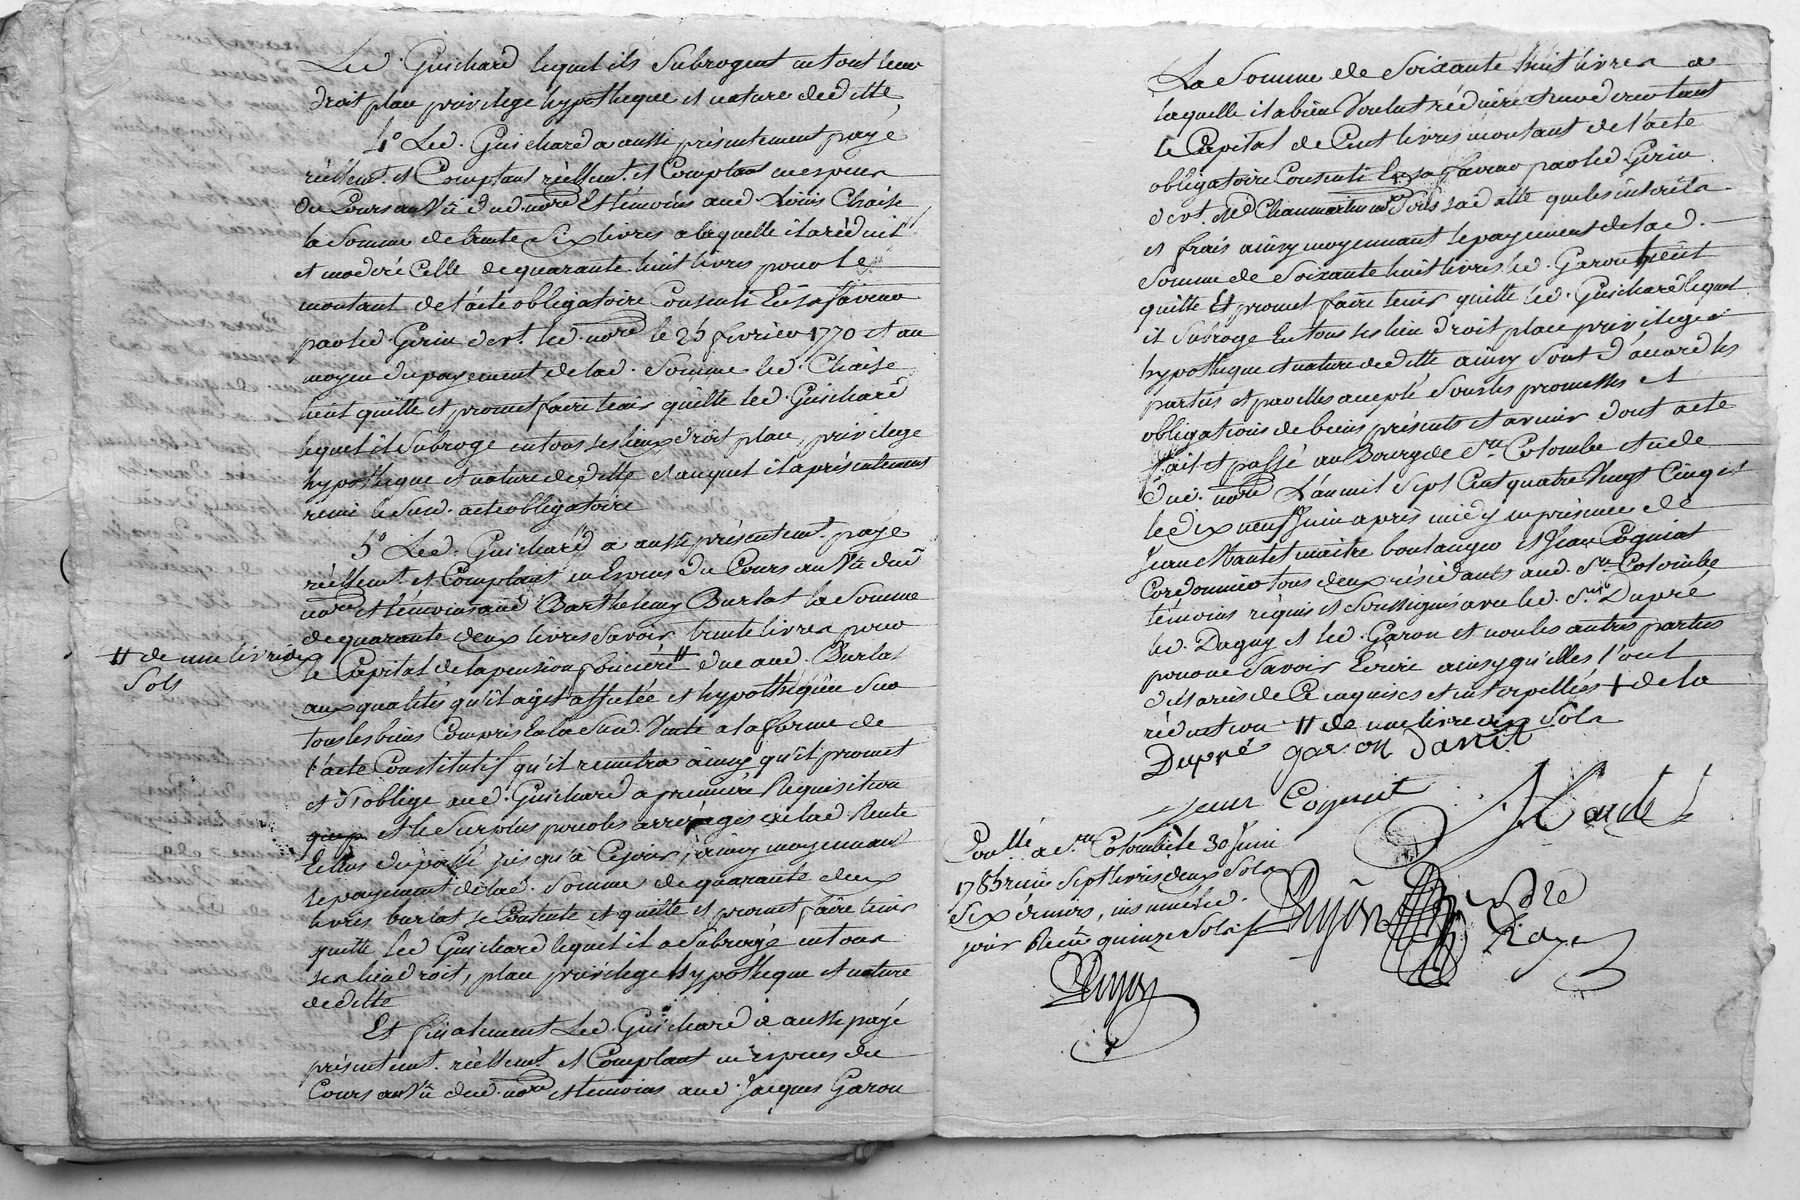 Led. Guichard lequel ils Subrogent en tout leur
droit place privilege hypotheque et nature de dette,
4° Led. Guichard a aussi présentement payé
réellemt. et Comptant réellemt. et Comptant en especes
du Cours au Vû dud. nore Et témoins aud. Loüis Chaise
la Somme de trente Six livres a laquelle il a réduit
et moderé Celle de quarante huit livres pour le
montant de l'acte obligatoire Consenti En sa faveur
par led. Gerin devt. led. nore le 25 fevrier 1770 et au
moyen du payement de lad. Somme led. Chaise
tient quitte et promet faire tenir quitte led. Guichard
lequel il Subroge en tous ses lieux droit place, privilege
hypotheque et nature de dette et auquel il a présentement
remi le Susd. acte obligatoire
5° Led. Guichard a aussi présentemt. payé
réellemt. et Comptant en Especes du Cours au Vû dud.
nore et témoins aud. Barthelemy Burlat la Somme
de quarante deux livres Savoir trente livres pour
le Capital de la pension fonciere # due aud. Burlat
# de une livre dix
Sols
aux qualités qu'il agit affectée et hypothequée Sur
tous les biens Compris En la Susd. Vente a la forme de
l'acte Constitutif qu'il remettra ainsy qu'il promet
et S'oblige aud. Guichard a premiere Requisition
et le Surplus pour les arrérages de lad. Rente
Echus du passé jusqu'à Ce jour, ainsy moyennant
le payement de lad. Somme de quarante deux
livres burlat se Contente et quitte et promet faire tenir
quitte led. Guichard lequel il a Subrogé en tous
ses lieu droit, place privilege hypotheque et nature
de dette
Et finalement Led. Guichard a aussi payé
présentemt. réellemt. et Comptant en especes du
Cours au Vû dud. nore et témoins aud. Jacques Garon
La Somme de Soixante huit livres a
laquelle il a bien Voulut réduire et moderer tant
le Capital de Cent livres montant de l'acte
obligatoire Consenti En sa faveur par led. Gerin
devt. Me Chaumartin nore Sous sa datte que les interêts
et frais ainsy moyennant le payement de lad.
Somme de Soixante huit livres led. Garon tient
quitte Et promet faire tenir quitte led. Guichard lequel
il Subroge En tous ses lieu droit place privilege
hypotheque et nature de dette ainsy Sont d'accord les
parties et par elles accepté Sous les promesses et
obligations de biens présents et avenir dont acte
fait et passé au Bourg de Ste. Colombe etude
dud. nore L'an mil Sept Cent quatre Vingt Cinq et
le dix neuf Juin après midy en présence de
Jean Hardet maitre boulanger et Jean Cogniat
Cordonnier tous deux résidants aud. Ste. Colombe
témoins requis et Soussignés avec led. Sieur Dupré
led. Dagny et led. Garon et non les autres parties
pour ne Savoir Ecrire ainsy qu'elles l'ont
déclaré de Ce enquises et interpellées + de la
réduction # de une livre dix Sols
Dupré garon Danit
Jean Cogniat
J Hardet
Coollé a Ste. Colombe le 30 Juin
1785 reçu Sept livres deux Sols
Six deniers, insinué led.
jour Reçu quinze Sols
Dujon
Dujon